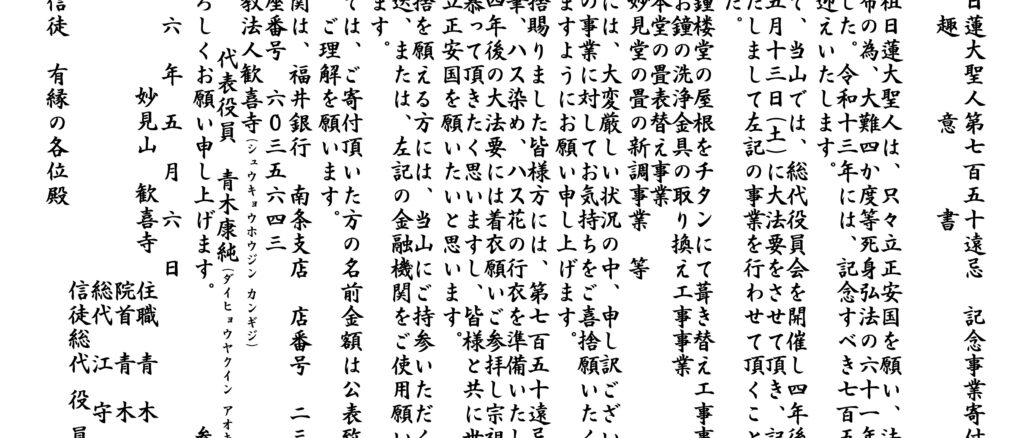 日蓮大聖人第七百五十遠忌　記念事業寄付
趣　意　書
祖日蓮大聖人は、只々立正安国を願い、法
布の為、大難四か度等死身弘法の六十一年
した。令和十三年には、記念すべき七百五
迎えいたします。
て、当山では、総代役員会を開催し四年後
五月十三日(土)に大法要をさせて頂き、記
たしまして左記の事業を行わせて頂くこと
た。
鐘楼堂の屋根をチタンにて葺き替え工事事
お鐘の洗浄金具の取り換え工事事業
本堂の畳表替え事業
妙見堂の畳の新調事業　等
には、大変厳しい状況の中、申し訳ござい
の事業に対してお気持ちをご喜捨願いたく
ますようにお願い申し上げます。
捨賜りました皆様方には、第七百五十遠忌
筆、ハス染め、ハス花の行衣を準備いたし
四年後の大法要には着衣願いご参拝し宗祖
恭って頂きたく思いますし、皆様と共に世
立正安国を願いたいと思います。
捨を願える方には、当山にご持参いただく
送、または、左記の金融機関をご使用願い
ます。
ては、ご寄付頂いた方の名前金額は公表致
ご理解を願います。
関は、福井銀行　南条支店　店番号　二三
座番号　六０三五六四三
教法人歓喜寺(シュウキョウホウジン カンギジ)
代表役員　青木康純(ダイヒョウヤクイン アオキ
ろしくお願い申し上げます。
六　年　五　月　六　日
妙見山　歓喜寺
住職　青　木
院首　青　木
総代　江　守
信徒総代　役　員
信徒　有縁の各位殿